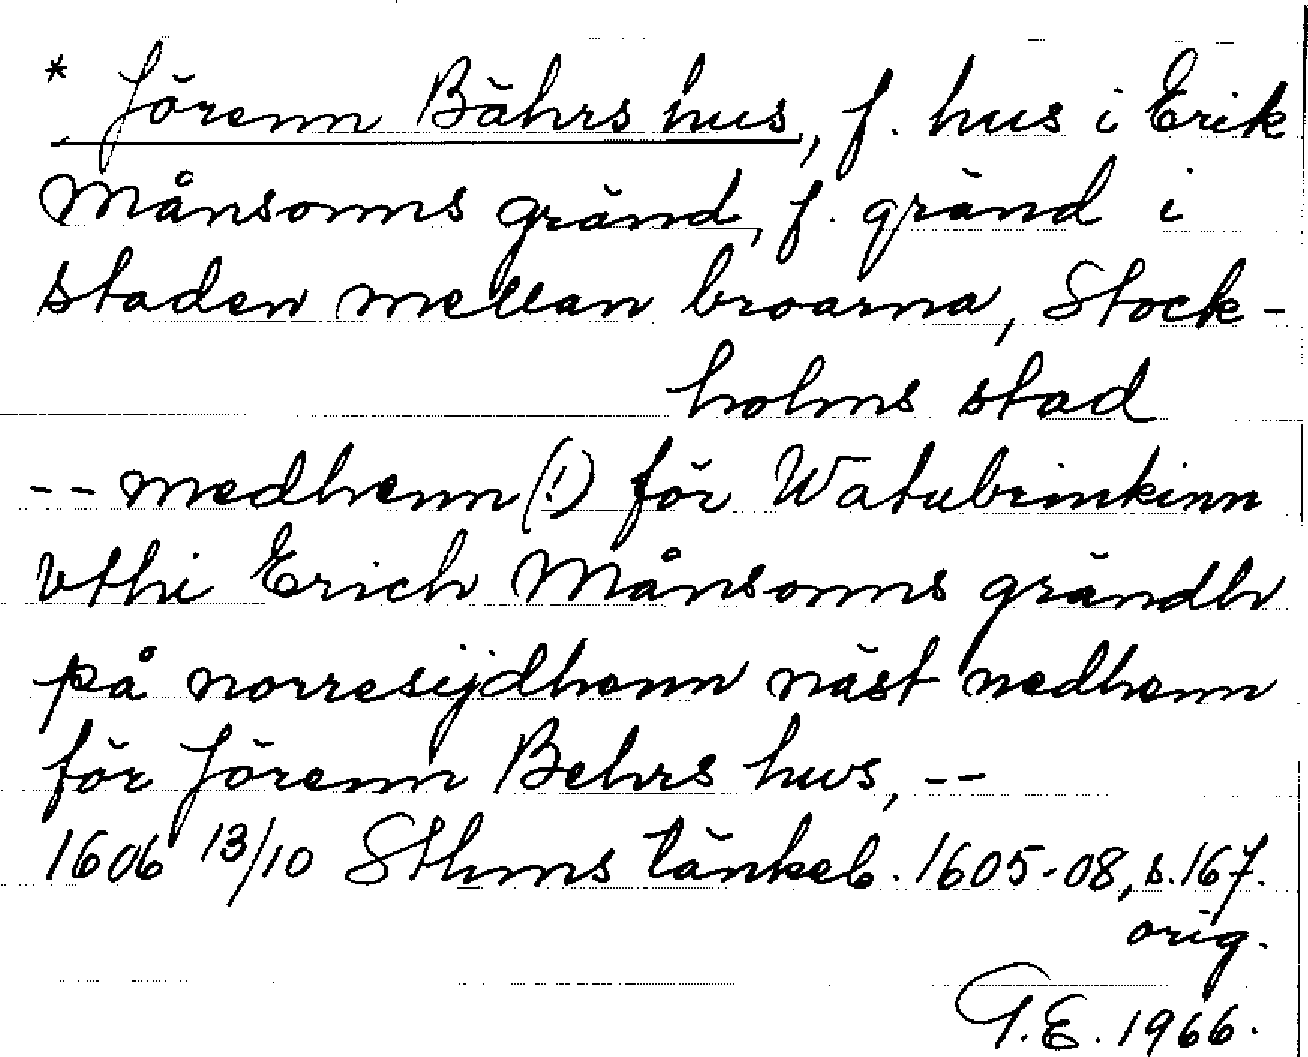 * Jörenn Bährs hus, f. hus i Erik
Månsonns gränd, f. gränd i
staden mellan broarna, Stock-
holms stad
-- medhenn (!) för Watubrinkinn
vthi Erich Månsonns grändh
på norresijdhenn näst nedhenn
för Jörenn Behrs hws, --
1606 13/10 Sthms tänkeb. 1605-08, s. 167.
orig.
G.E. 1966.